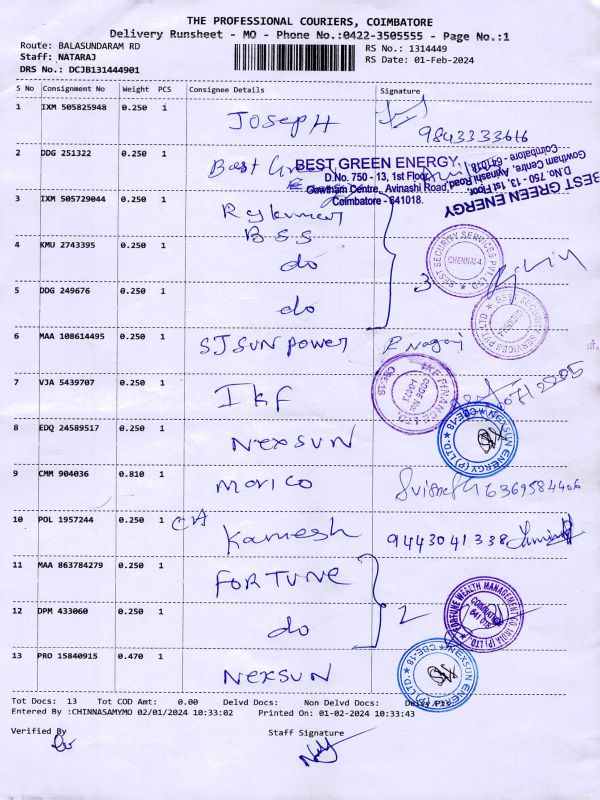 THE PROFESSIONAL COURIERS, COIMBATORE
Delivery Runsheet - MO - Phone No.:0422-3505555 - Page No.:1
Route: BALASUNDARAM RD
RS No.: 1314449
Staff: NATARAJ
RS Date: 01-Feb-2024
DRS No.: DCJB131444901
S No Consignment No Weight PCS Consignee Details Signature
1 IXM 505825948 0.250 1 JosepH
9843333616
2 DDG 251322 0.250 1 Best
BEST GREEN ENERGY,
D.No. 750 - 13, 1st Floor,
Gowtham Centre, Avinashi Road,
Coimbatore - 641018.
BEST GREEN ENERGY
D.No. 750 - 13, 1st Floor,
Gowtham Centre, Avinashi Road,
Coimbatore - 641018.
3 IXM 505729044 0.250 1 Rajkumar
4 KMU 2743395 0.250 1 B.S.S
do
BEST SECURITY SERVICES PVT LTD
CHENNAI-4
3
5 DDG 249676 0.250 1 do
6 MAA 108614495 0.250 1 SJSUN power
R Nagaj
7 VJA 5439707 0.250 1 Ikf
IKF FINANCE LTD
CBE-18
8 EDQ 24589517 0.250 1 NEXSUN
NEXSUN ENERGY (P) LTD.
CBE-18
9 CMM 904036 0.810 1 morico
6369584406
10 POL 1957244 0.250 1 Kamesh
9443041338
11 MAA 863784279 0.250 1 FORTUNE
12 DPM 433060 0.250 1 do
2
FORTUNE WEALTH MANAGEMENT CO. INDIA (P) LTD.
COIMBATORE
641 018
13 PRO 15840915 0.470 1 NEXSUN
NEXSUN ENERGY (P) LTD.
CBE-18
Tot Docs: 13 Tot COD Amt: 0.00 Delvd Docs: Non Delvd Docs:
Entered By :CHINNASAMYMO 02/01/2024 10:33:02 Printed On: 01-02-2024 10:33:43
Verified By
Staff Signature